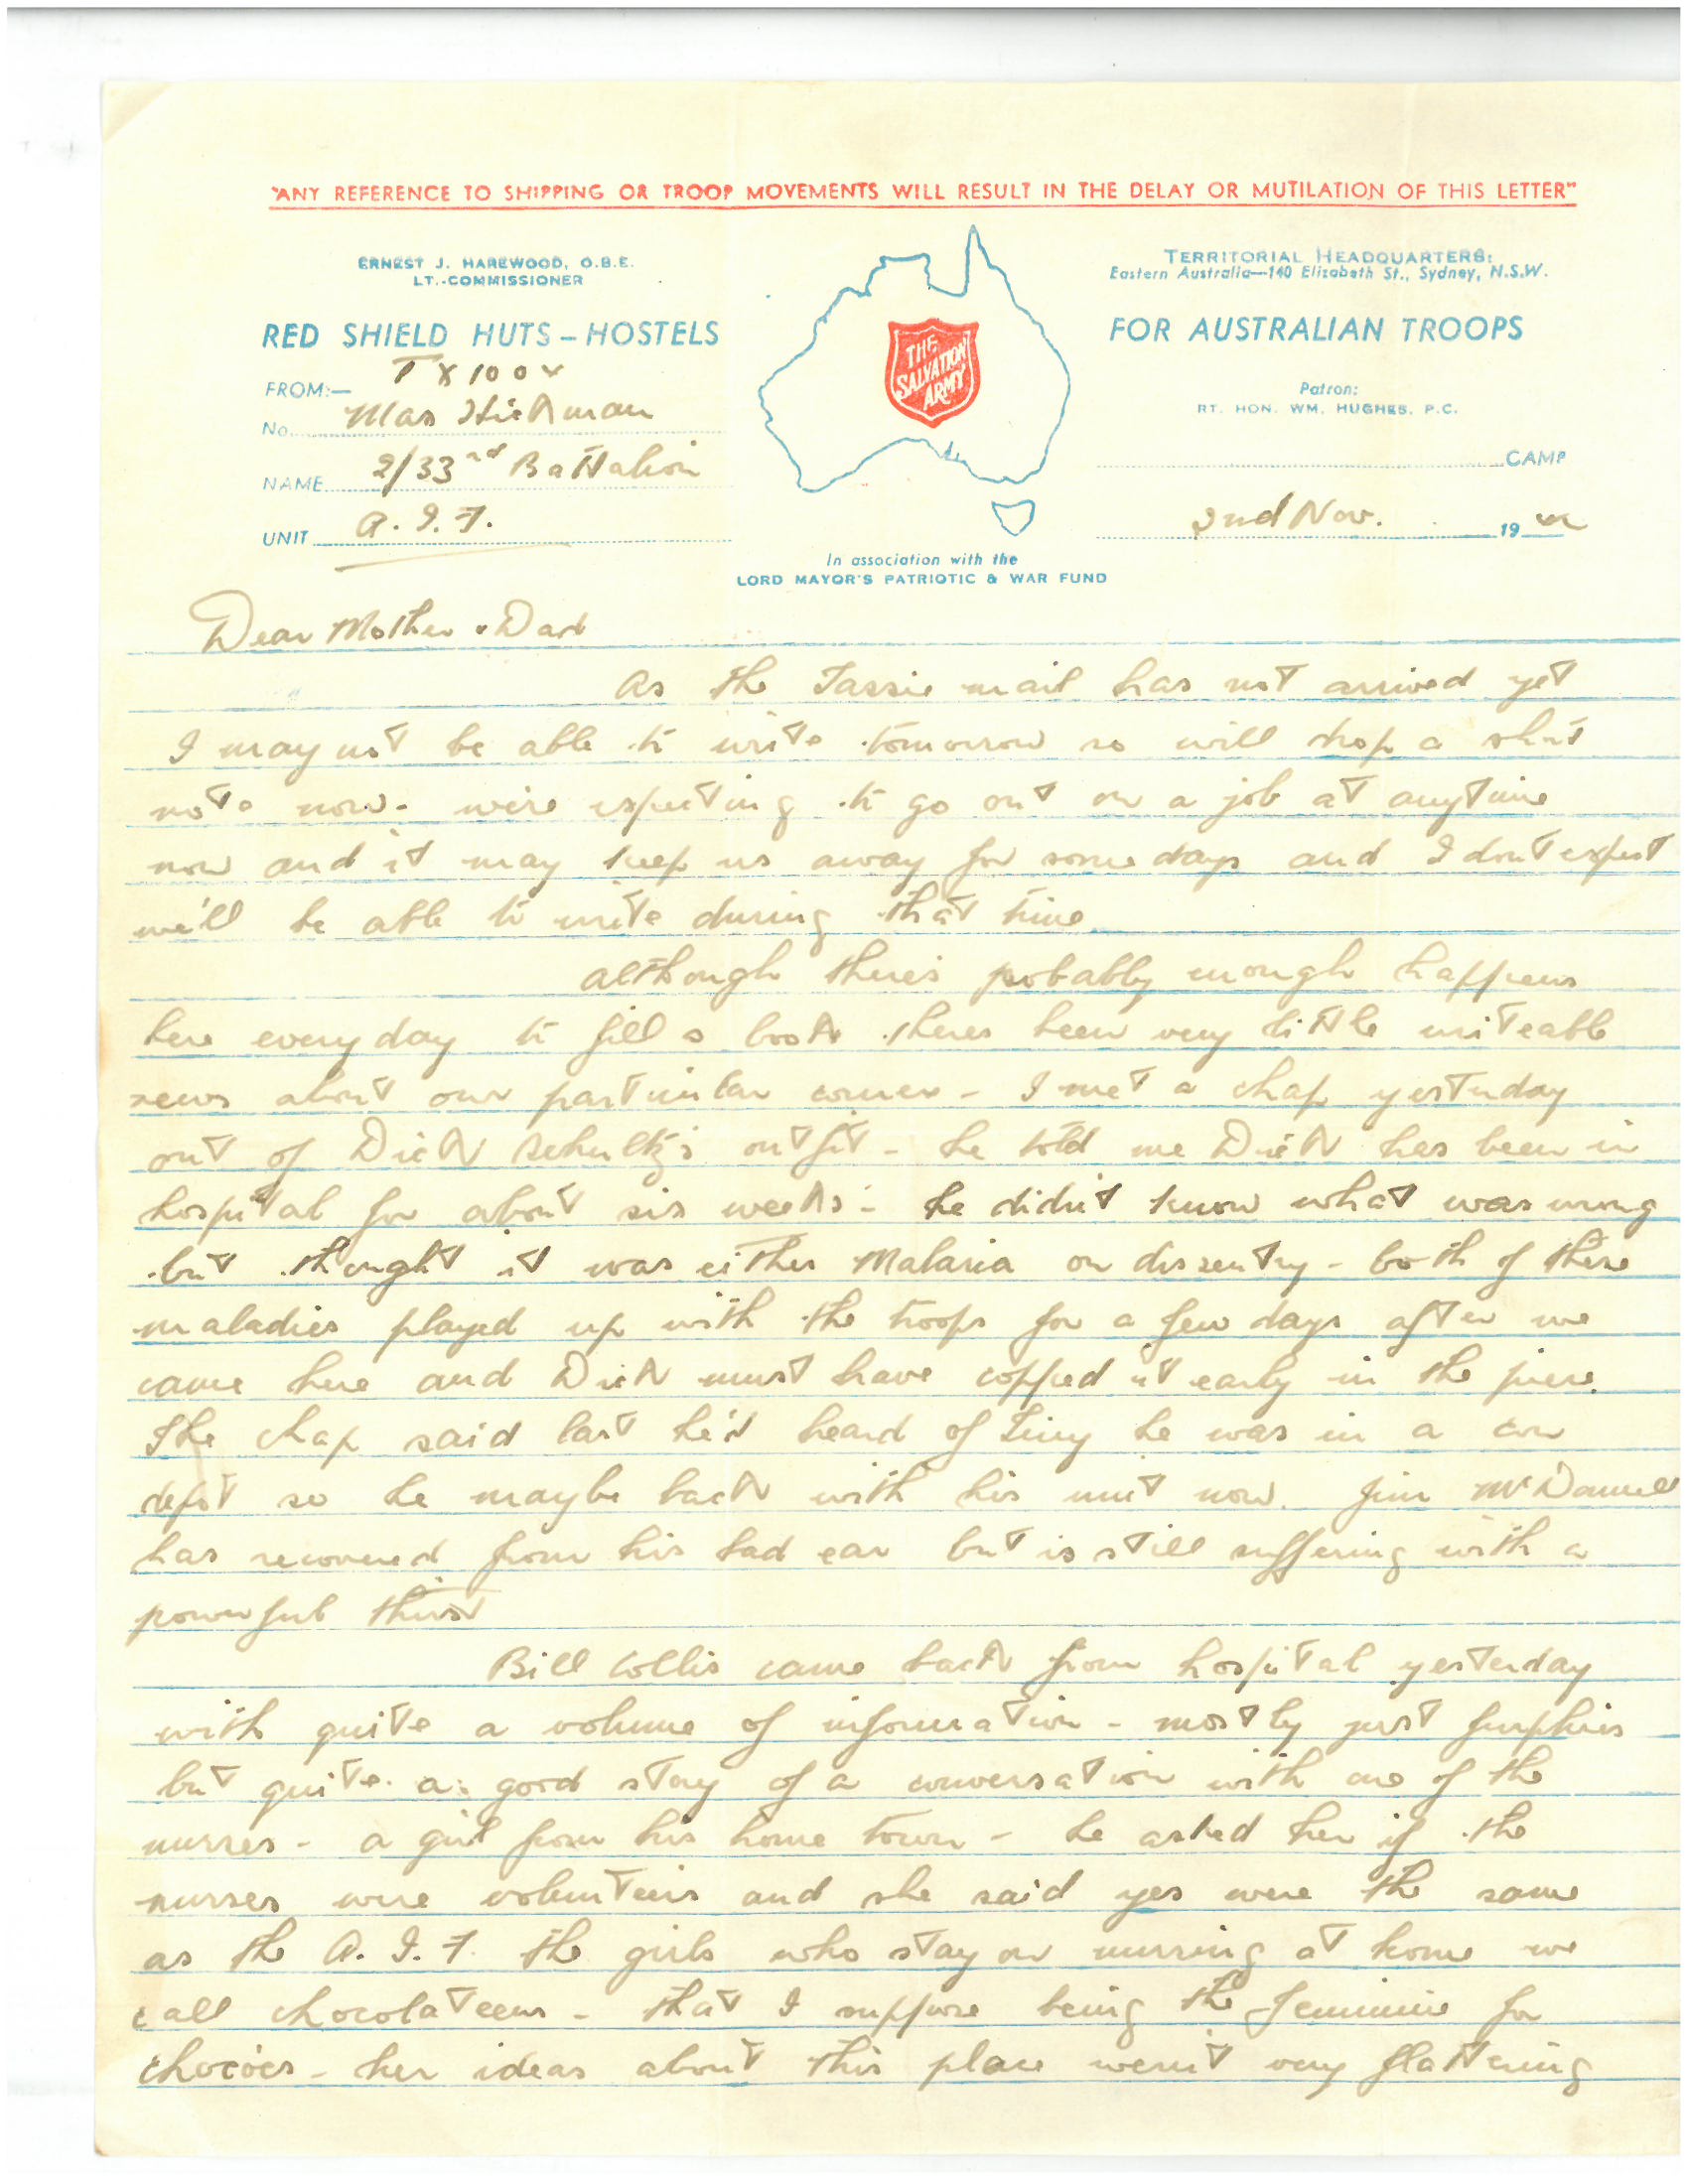 "ANY REFERENCE TO SHIPPING OR TROOP MOVEMENTS WILL RESULT IN THE DELAY OR MUTILATION OF THIS LETTER"
ERNEST J. HAREWOOD, O.B.E.
LT.-COMMISSIONER
TERRITORIAL HEADQUARTERS:
Eastern Australia—140 Elizabeth St., Sydney, N.S.W.
RED SHIELD HUTS – HOSTELS
THE SALVATION ARMY
FOR AUSTRALIAN TROOPS
Patron:
RT. HON. WM. HUGHES, P.C.
FROM:— TX1004
No. Mas Hickman
NAME 2/33rd Battalion
UNIT A.I.F.
CAMP
2nd Nov. 19
In association with the
LORD MAYOR'S PATRIOTIC & WAR FUND
Dear Mother & Dad
As the Tassie mail has not arrived yet
I may not be able to write tomorrow so will drop a short
note now - we're expecting to go out on a job at anytime
now and it may keep us away for some days and I dont expect
we'll be able to write during that time
Although there's probably enough happens
here everyday to fill a book theres been very little writeable
news about our particular corner - I met a chap yesterday
out of Dick Schultz's outfit - he told me Dick has been in
hospital for about six weeks - he didn't know what was wrong
but thought it was either Malaria or dissentry - both of these
maladies played up with the troops for a few days after we
came here and Dick must have copped it early in the piece.
The chap said last he'd heard of Tiny he was in a con
depot so he maybe back with his unit now. Jim McDonnell
has recovered from his bad ear but is still suffering with a
powerful thirst
Bill Collis came back from hospital yesterday
with quite a volume of information - mostly just furphies
but quite a good story of a conversation with one of the
nurses - a girl from his home town - he asked her if the
nurses were volunteers and she said yes were the same
as the A.I.F. the girls who stay on nursing at home we
call chocolateers - that I suppose being the feminine for
chocoes - her ideas about this place weren't very flattering